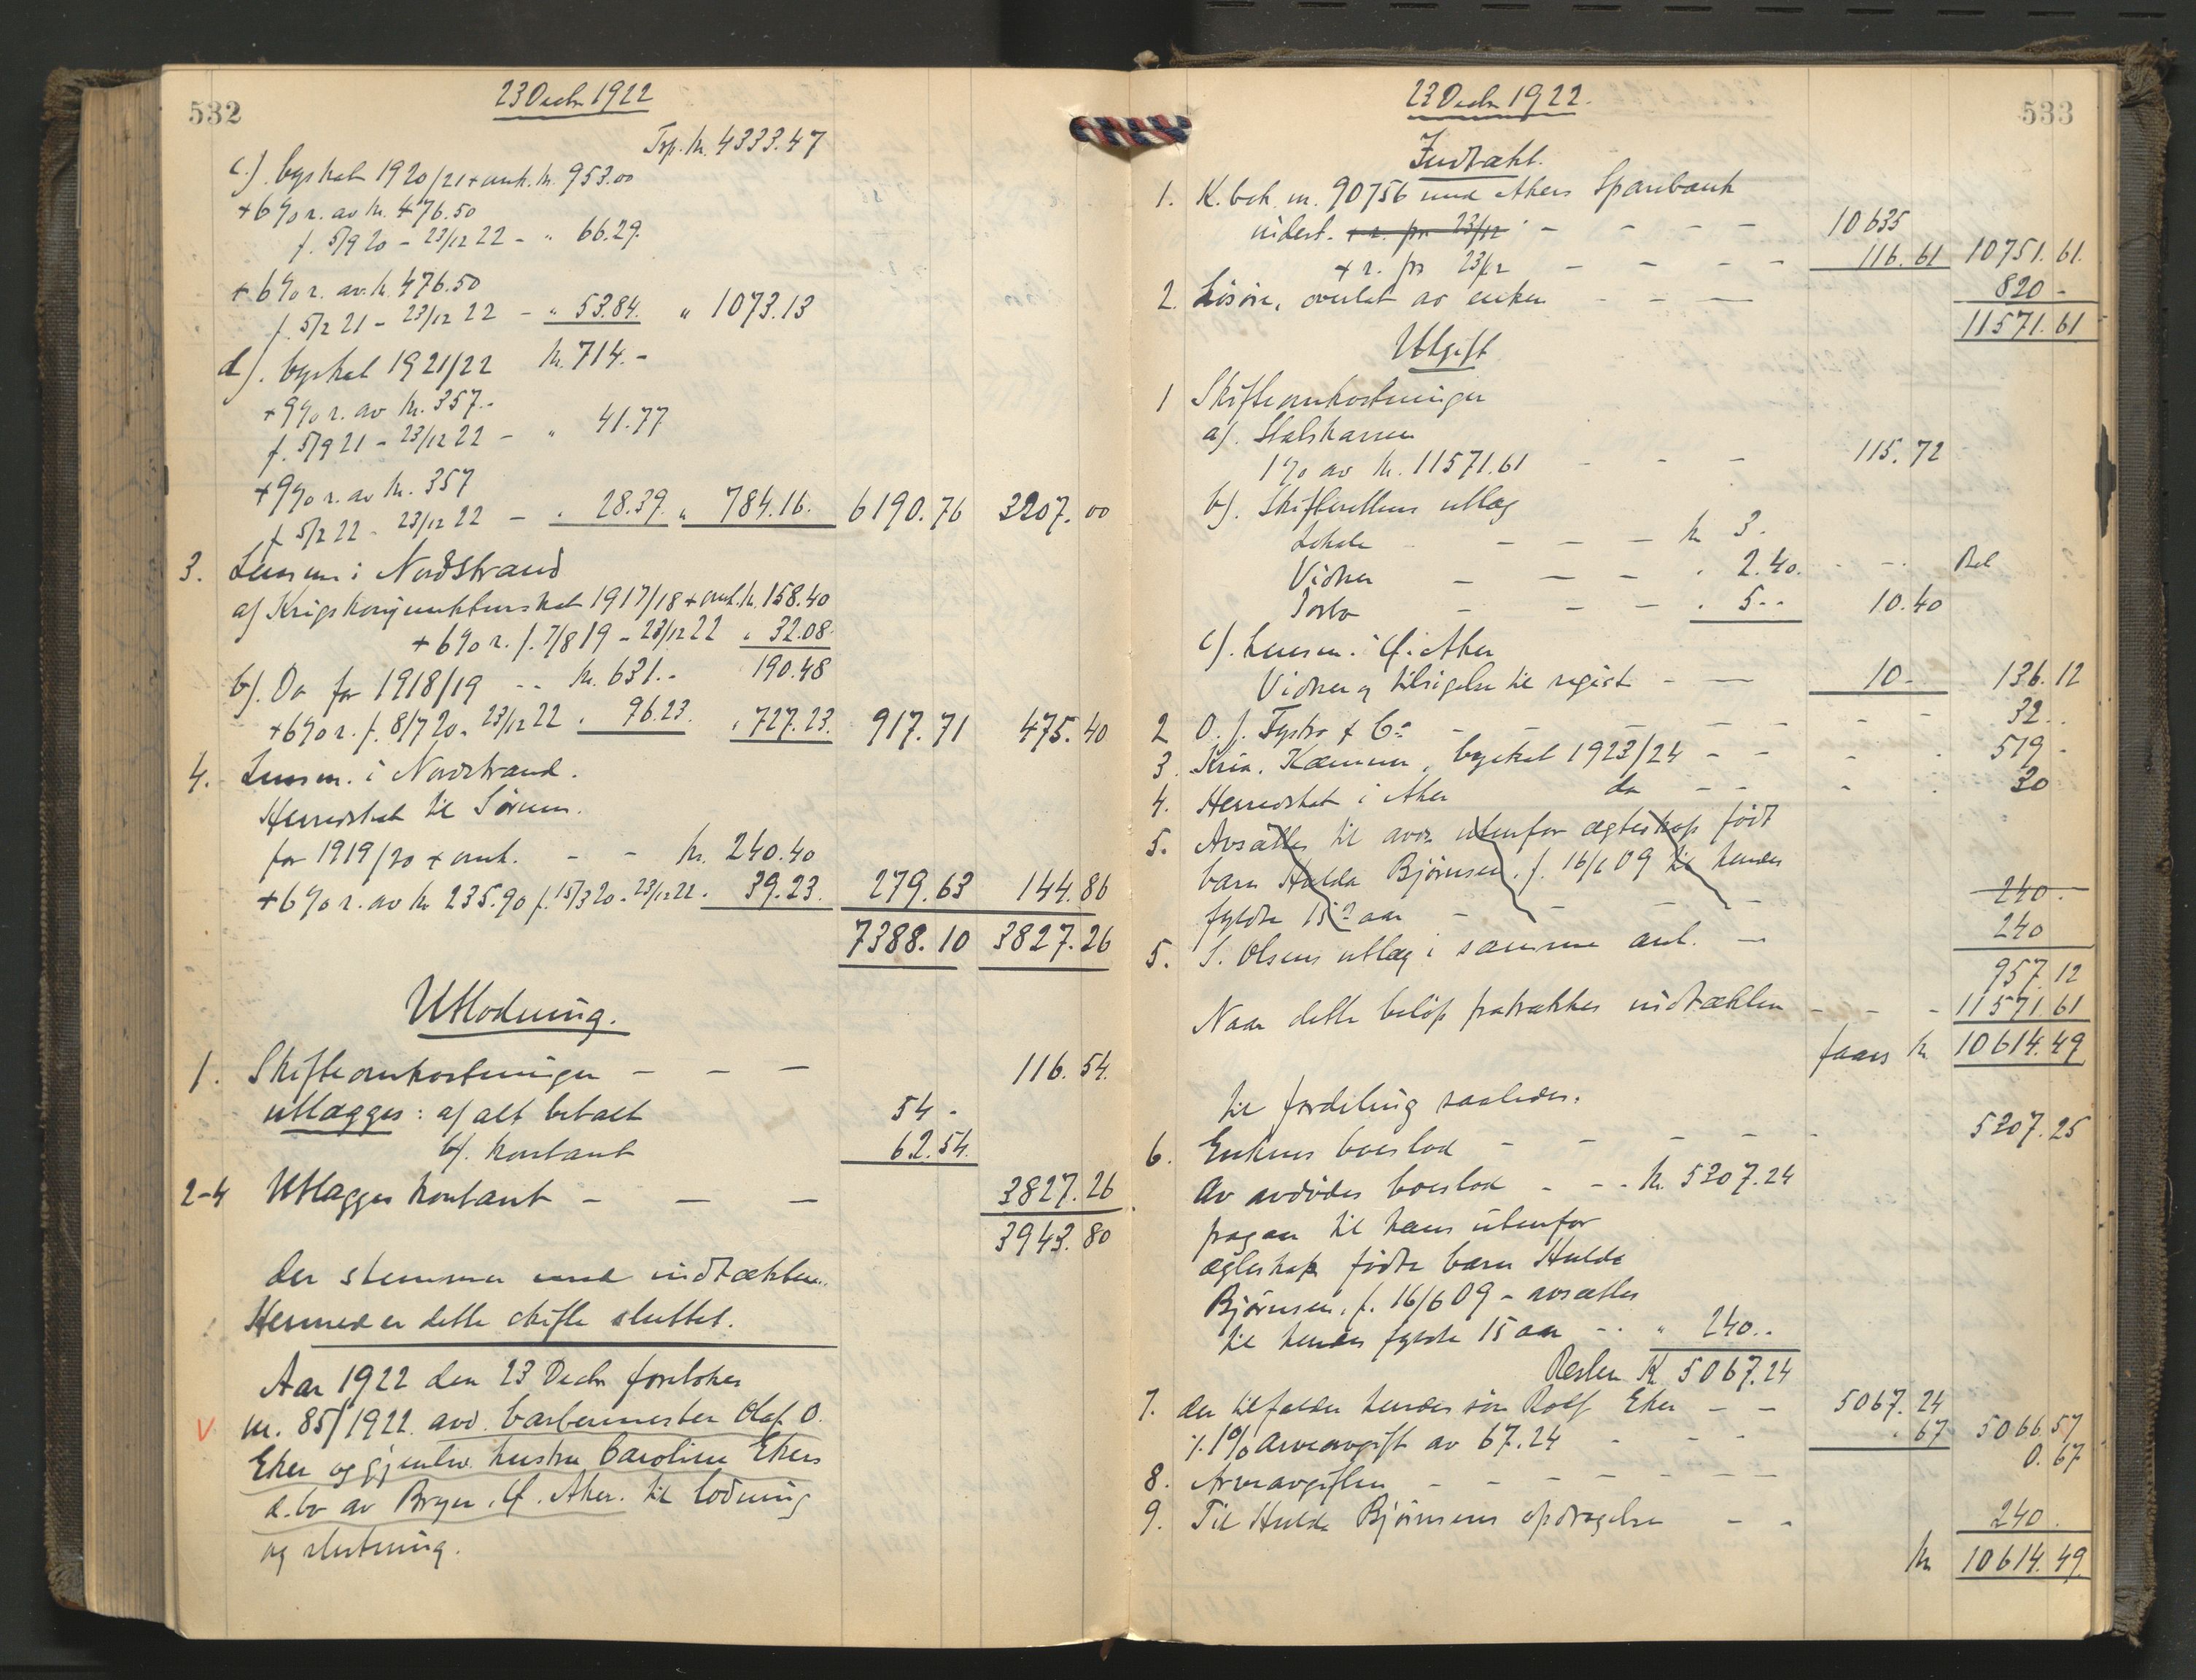 532
23 Decbr 1922
Trp. kr. 4333.47
c). byskat 1920/21 + omk. kr. 953.00
+ 6% r. av kr. 476.50
f. 5/9 20 - 23/12 22 - " 66.29.
+ 6% r. av kr. 476.50
f. 5/2 21 - 23/12 22 - " 53.84. " 1073.13
d). byskat 1921/22 kr. 714.-
+ 9% r. av kr. 357.-
f. 5/9 21 - 23/12 22 - " 41.77
+ 9% r. av kr. 357
f. 5/2 22 - 23/12 22 - " 28.39. " 784.16. 6190.76 3207.00
3. Lensm. i Nordstrand
a) Krigskonjunkturskat 1917/18 + omk. kr. 158.40
+ 6% r. f. 7/8 19 - 23/12 22 " 32.08.
190.48
b). Do for 1918/19 -- kr. 631.-
+ 6% r. f. 8/7 20 - 23/12 22 " 96.23. " 727.23. 917.71 475.40
4. Lensm. i Nordstrand.
Herredskat til Sørum.
for 1919/20 + omk. - - kr. 240.40
+ 6% r. av kr 235.90 f. 15/3 20 - 23/12 22 - 39.23. 279.63 144.86
7388.10 3827.26
Utlodning.
1. Skifteomkostninger - - - 116.54.
utlægges: a) alt betalt 54.-
b). kontant 62.54.
2-4 Utlægges kontant - - - 3827.26
3943.80
der stemmer med indtækten.
Hermed er dette skifte sluttet.
Aar 1922 den 23 Decbr foretokes
v nr. 85/1922 avd. barbermester Olaf O.
Eker og gjenlev. hustru Caroline Ekers
d.bo av Bryn, Ø. Aker. til lodning
og slutning.
533
23 Decbr 1922.
Indtækt.
1. K.bok nr. 90756 med Akers Sparebank
indest. + r. pr 23/12 - - - - 10635
+ r. pr 23/12 - - - - 116.61 10751.61.
2. Løsøre, overlat av enken - - - 820 -
11571.61
Utgift
1 Skifteomkostninger
a). Statskassen
1% av kr. 11571.61 - - - 115.72
b). Skifterettens utlæg
Lokale - - - kr 3.
Vidner - - - " 2.40.
Porto - - - " 5-- 10.40
c). Lensm. i Ø. Aker
Vidner og tilsigelse til regist - - 10- 136.12
2 O. J. Fystro & Co - - - 32..
3. Kria. Kæmner, byskat 1923/24 - - 519 -
4. Herredskat i Aker do - - 30
5. Avsættes til avdødes utenfor ægteskap født
barn Hulda Bjørnsen, f. 16/6 09 til hendes
fyldte 15de aar - - - 240 -
5. S. Olsens utlæg i samme anl. - 240
957.12
Naar dette beløp fratrækkes indtækten - - - 11571.61
faaes kr 10614.49
til fordeling saaledes.
6. Enkens boeslod - - - - - 5307.25
Av avdødes boeslod - - - kr. 5307.24
fragaar til hans utenfor
ægteskap fødte barn Hulda
Bjørnsen, f. 16/6 09 - avsættes
til hendes fyldte 15 aar - - " 240..
Resten K 5067.24
7. der tilfalder hendes søn Rolf Eker - - 5067.24
./. 1% arveavgift av 67.24 - - - " 67 5066.57
8. Arveavgiften - - - - - - 0.67
9. Til Hulda Bjørnsens opdragelse - - 240.
kr 10614.49.